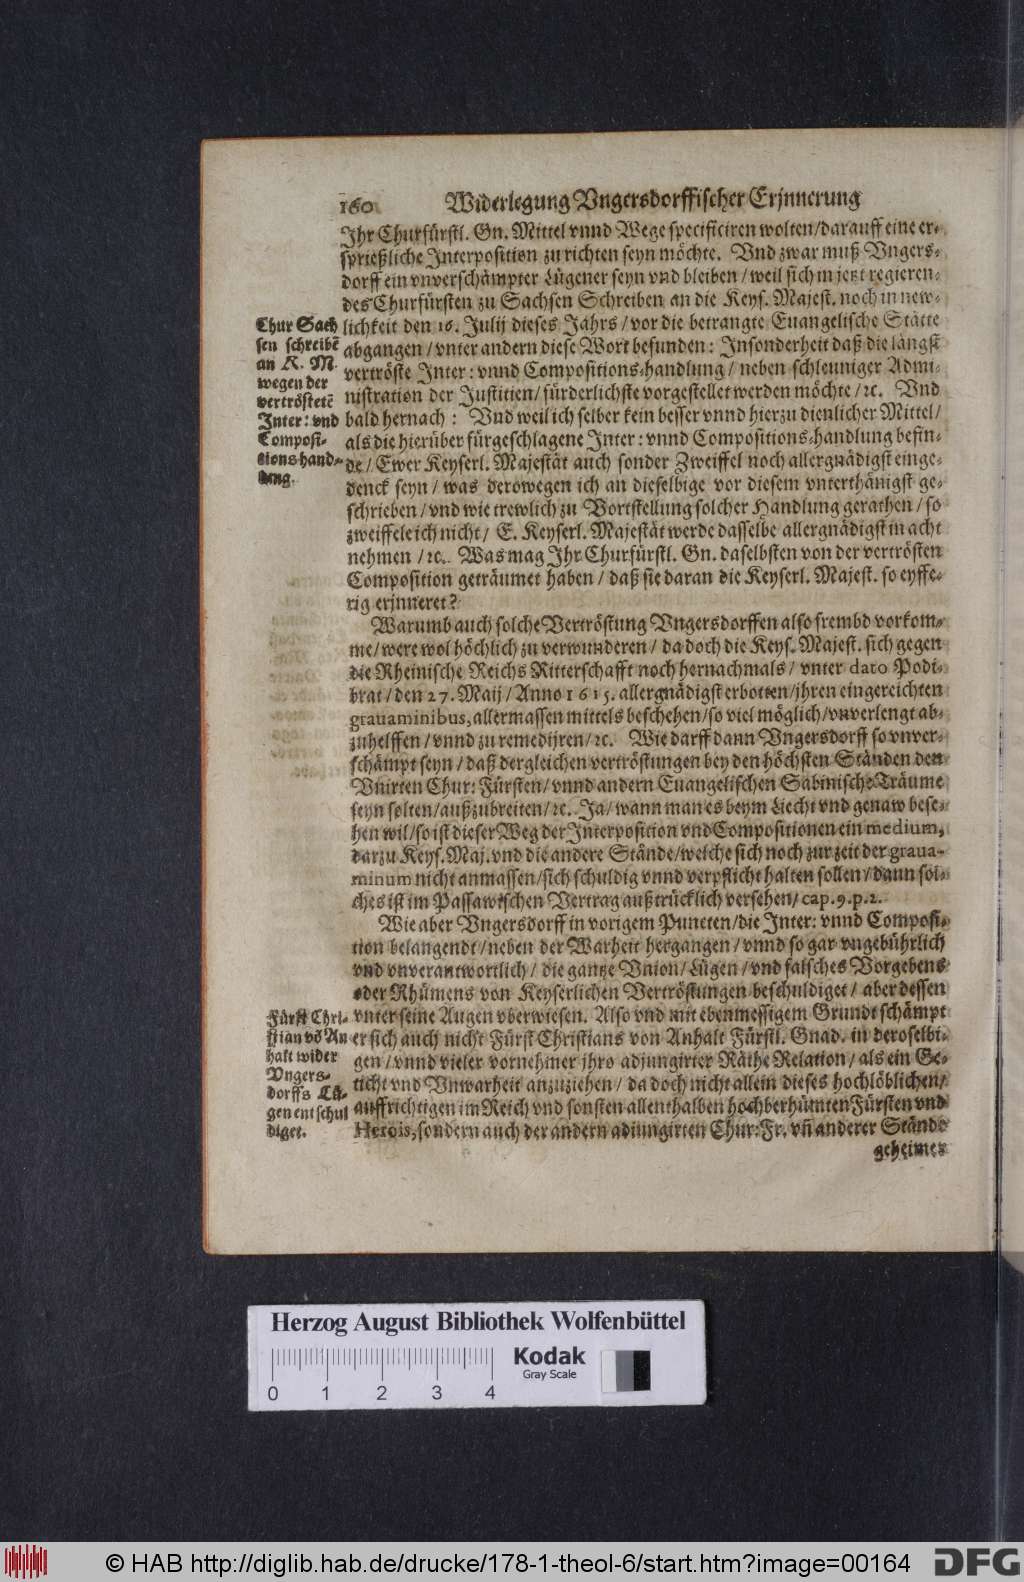 160 Widerlegung Vngersdorffischer Erjnnerung
Ihr Churfürstl. Gn. Mittel vnnd Wege specificiren wolten/darauff eine er-
sprießliche Interposition zu richten seyn möchte. Vnd zwar muß Vngers-
dorff ein vnverschämpter Lügener seyn vnd bleiben/ weil sich in jetzt regieren-
des Churfürsten zu Sachsen Schreiben an die Keys. Majest. noch in new-
lichkeit den 16. Julij dieses Jahrs/ vor die betrangte Euangelische Stätte
abgangen/ vnter andern diese Wort befunden: Insonderheit daß die längst
vertröste Inter: vnnd Compositions-handlung/ neben schleuniger Admi-
nistration der Justitien/ fürderlichste vorgestellet werden möchte/ ꝛc. Vnd
bald hernach: Vnd weil ich selber kein besser vnnd hierzu dienlicher Mittel/
als die hierüber fürgeschlagene Inter: vnnd Compositions-handlung befin-
de/ Ewer Keyserl. Majestät auch sonder Zweiffel noch allergnädigst einge-
denck seyn/ was derowegen ich an dieselbige vor diesem vnterthänigst ge-
schrieben/ vnd wie trewlich zu Vortstellung solcher Handlung gerathen/ so
zweiffele ich nicht/ E. Keyserl. Majestät werde dasselbe allergnädigst in acht
nehmen/ ꝛc. Was mag Ihr Churfürstl. Gn. daselbsten von der vertrösten
Composition geträumet haben/ daß sie daran die Keyserl. Majest. so eyffe-
rig erjnneret?
Chur Sach
sen schreibē
an K. M.
wegen der
vertröstetē
Inter: vnd
Composi-
tions hand-
lung.
Warumb auch solche Vertröstung Vngersdorffen also frembd vorkom-
me/ were wol höchlich zu verwunderen/ da doch die Keys. Majest. sich gegen
die Rheinische Reichs Ritterschafft noch hernachmals/ vnter dato Podi-
brat/ den 27. Maij/ Anno 1615. allergnädigst erbotten/ jhren eingereichten
grauaminibus, allermassen mittels beschehen/ so viel möglich/ vnverlengt ab-
zuhelffen/ vnnd zu remedijren/ ꝛc. Wie darff dann Vngersdorff so vnver-
schämpt seyn/ daß dergleichen vertröstungen bey den höchsten Ständen den
Vnirten Chur: Fürsten/ vnnd andern Euangelischen Sabinische Träume
seyn solten/ außzubreiten/ ꝛc. Ja/ wann man es beym Liecht vnd genaw bese-
hen wil/ so ist dieser Weg der Interposition vnd Compositionen ein medium,
darzu Keys. Maj. vnd die andere Stände/ welche sich noch zur zeit der graua-
minum nicht anmassen/ sich schuldig vnnd verpflicht halten sollen/ dann sol-
ches ist im Passawischen Vertrag außtrücklich versehen/ cap. 9. p. 2.
Wie aber Vngersdorff in vorigem Puncten/ die Inter: vnnd Composi-
tion belangendt/ neben der Warheit hergangen/ vnnd so gar vngebührlich
vnd vnverantwortlich/ die gantze Vnion/ Lügen/ vnd falsches Vorgebens
oder Rhümens von Keyserlichen Vertröstungen beschuldiget/ aber dessen
vnter seine Augen vberwiesen. Also vnd mit ebenmessigem Grundt schämpt
er sich auch nicht Fürst Christians von Anhalt Fürstl. Gnad. in deroselbi-
gen/ vnnd vieler vornehmer jhro adjungirter Räthe Relation/ als ein Ge-
ticht vnd Vnwarheit anzuziehen/ da doch nicht allein dieses hochlöblichen/
auffrichtigen im Reich vnd sonsten allenthalben hochberhümten Fürsten vnd
Herois, sondern auch der andern adiungirten Chur: Fr. vñ anderer Stände
Fürst Chri-
stian vō An
halt wider
Vngers-
dorffs Lü-
gen entschul
diget.
geheimer
Herzog August Bibliothek Wolfenbüttel
Kodak
Gray Scale
0 1 2 3 4
© HAB http://diglib.hab.de/drucke/178-1-theol-6/start.htm?image=00164
DFG